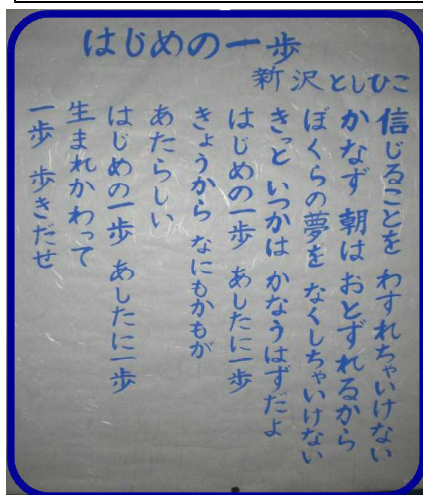 はじめの一歩
新沢としひこ
信じることを わすれちゃいけない
かなず 朝は おとずれるから
ぼくらの夢を なくしちゃいけない
きっと いつかは かなうはずだよ
はじめの一歩 あしたに一歩
きょうから なにもかもが
あたらしい
はじめの一歩 あしたに一歩
生まれかわって
一歩 歩きだせ